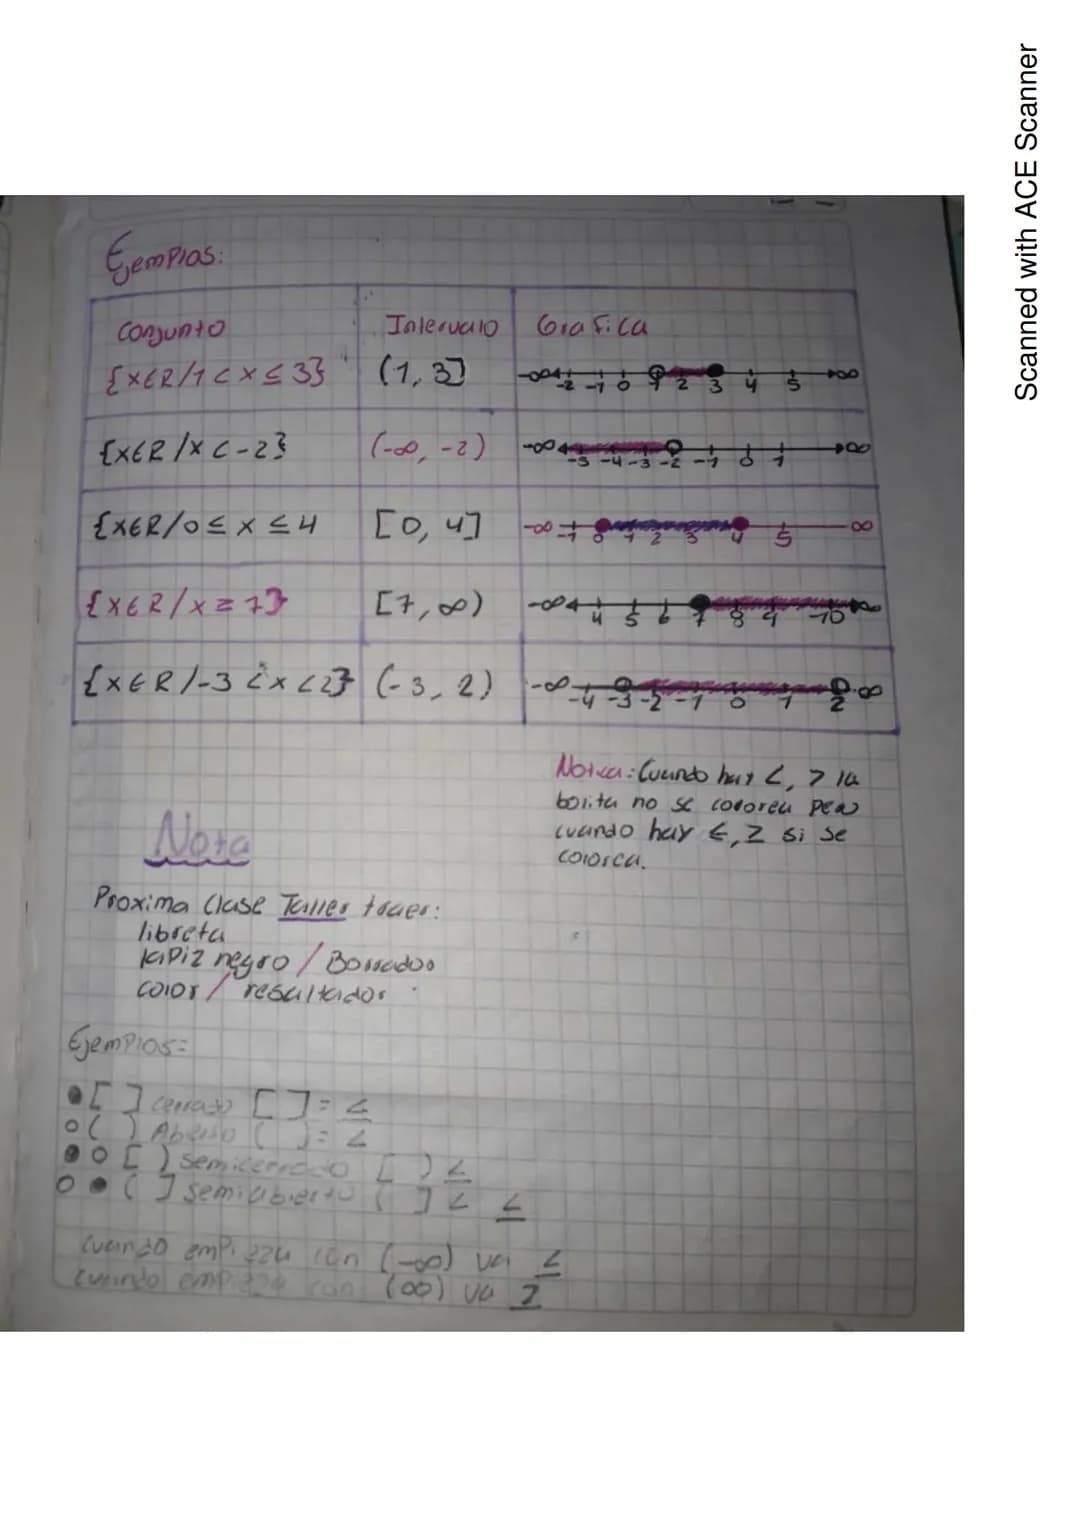 Ejemplos:
Conjunto Intervalo Grafica
{x∈R/1<x≤3} (1,3] -∞ -2 -1 0 1 2 3 4 5 ∞
{x∈R/x<-2} (-∞,-2) -∞ -5 -4 -3 -2 -1 0 1 ∞
{x∈R/0≤x≤4 [0,4] -∞ -1 0 1 2 3 4 5 ∞
{x∈R/x≥7} [7,∞) -∞ 4 5 6 7 8 9 10 ∞
{x∈R/-3<x<2} (-3,2) -∞ -4 -3 -2 -1 0 1 2 ∞
Notica: Cuando hay <, > la
bolita no se colorea pero
cuando hay ≤, ≥ si se
colorea.
Nota
Proxima Clase Taller traer:
libreta
lapiz negro / Borrador
color / resaltador
Ejemplos:
● [ ] cerrado [ ] = ≤
○ ( ) Abierto ( ) = <
● ○ [ ) semicerrado [ ) ≤
○ ● ( ] semiabierto ( ] < ≤
cuando empieza con (-∞) va ≤
cuando empieza con (∞) va ≥
Scanned with ACE Scanner